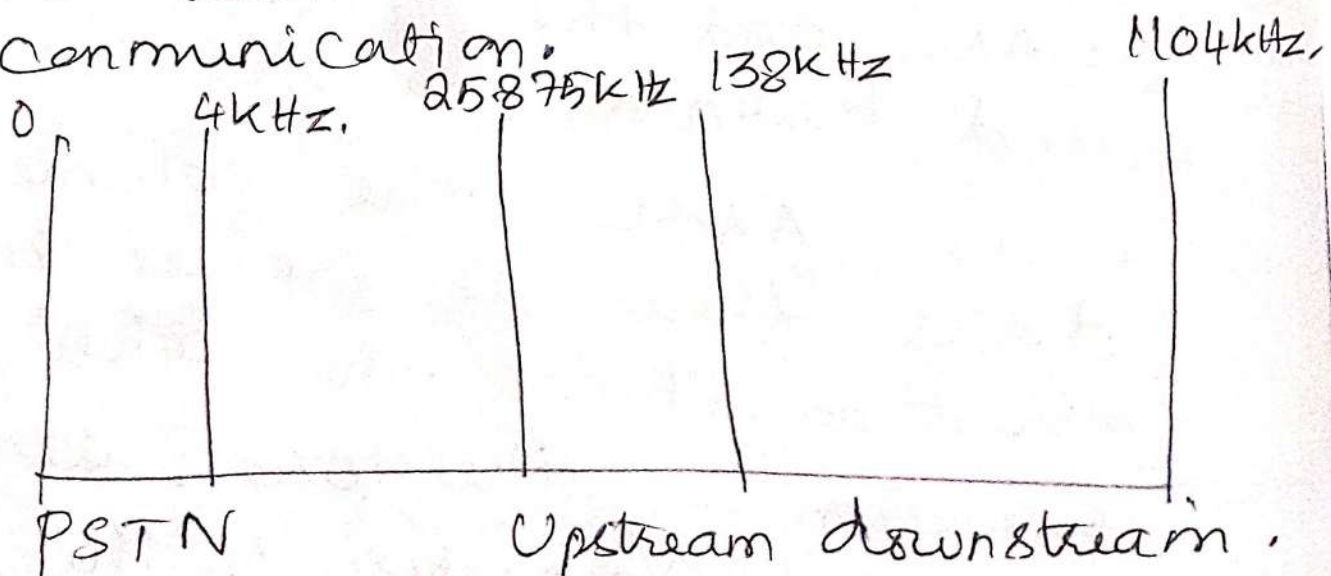 Conmunication.
0 4kHz. 25875kHz 138kHz 1104kHz.
PSTN Upstream downstream.